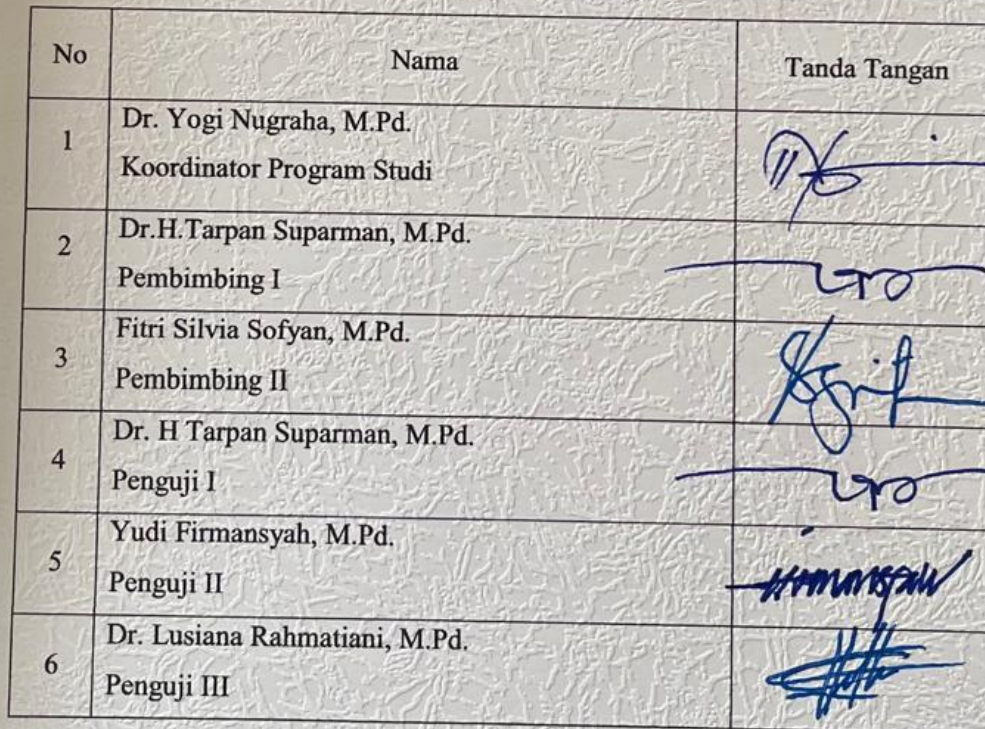 No Nama Tanda Tangan
1
Dr. Yogi Nugraha, M.Pd.
Koordinator Program Studi
2
Dr.H.Tarpan Suparman, M.Pd.
Pembimbing I
3
Fitri Silvia Sofyan, M.Pd.
Pembimbing II
4
Dr. H Tarpan Suparman, M.Pd.
Penguji I
5
Yudi Firmansyah, M.Pd.
Penguji II
6
Dr. Lusiana Rahmatiani, M.Pd.
Penguji III